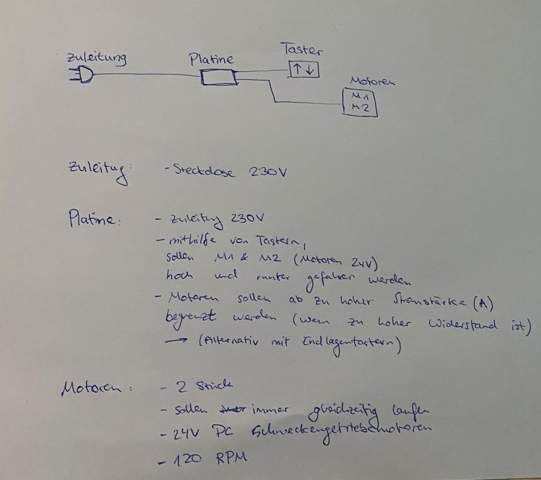 Zuleitung
Platine
Taster
↑ ↓
Motoren
M1
M2
Zuleitung: - Steckdose 230V
Platine: - Zuleitung 230V
- mithilfe von Tastern,
sollen M1 & M2 (Motoren 24V)
hoch und runter gefahren werden
- Motoren sollen ab zu hoher Stromstärke (A)
begrenzt werden (wenn zu hoher Widerstand ist)
→ (Alternativ mit Endlagentastern)
Motoren: - 2 Stück
- sollen immer gleichzeitig laufen
- 24V DC Schneckengetriebemotoren
- 120 RPM